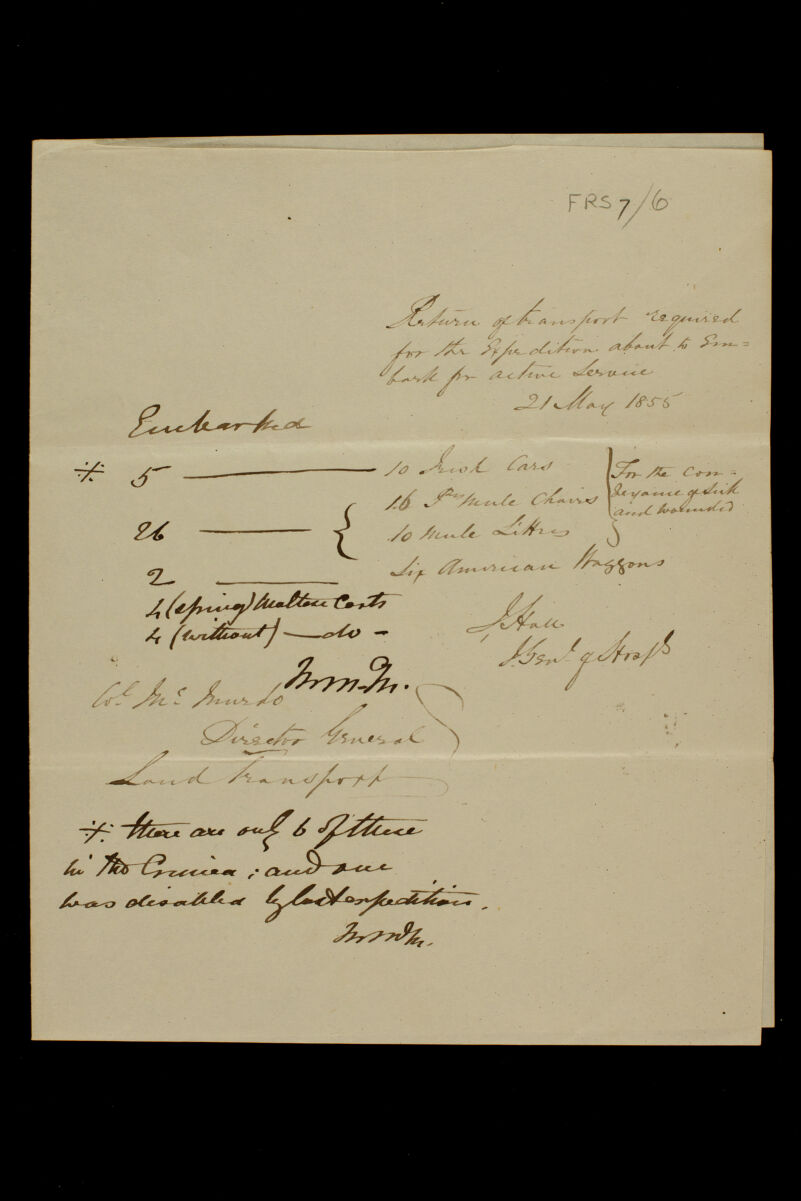 FRS 7/6
Return of transport required
for the Expedition about to Em=
bark for active Service
21 May 1855
Embarked
5 — 10 Irish Cars
16 Prs Mule Chairs
26 — { 10 Mule Litters
} For the con=
veyance of Sick
and wounded
2 — Six American Waggons
4 (spring) Maltese Carts
4 (without) — do —
J. Hall
I. Genl. of Hospls
Col. Mc Murdo
Director General
Land Transport
there are only 6 of these
in the Crimea; and one
was disabled by last expedition.